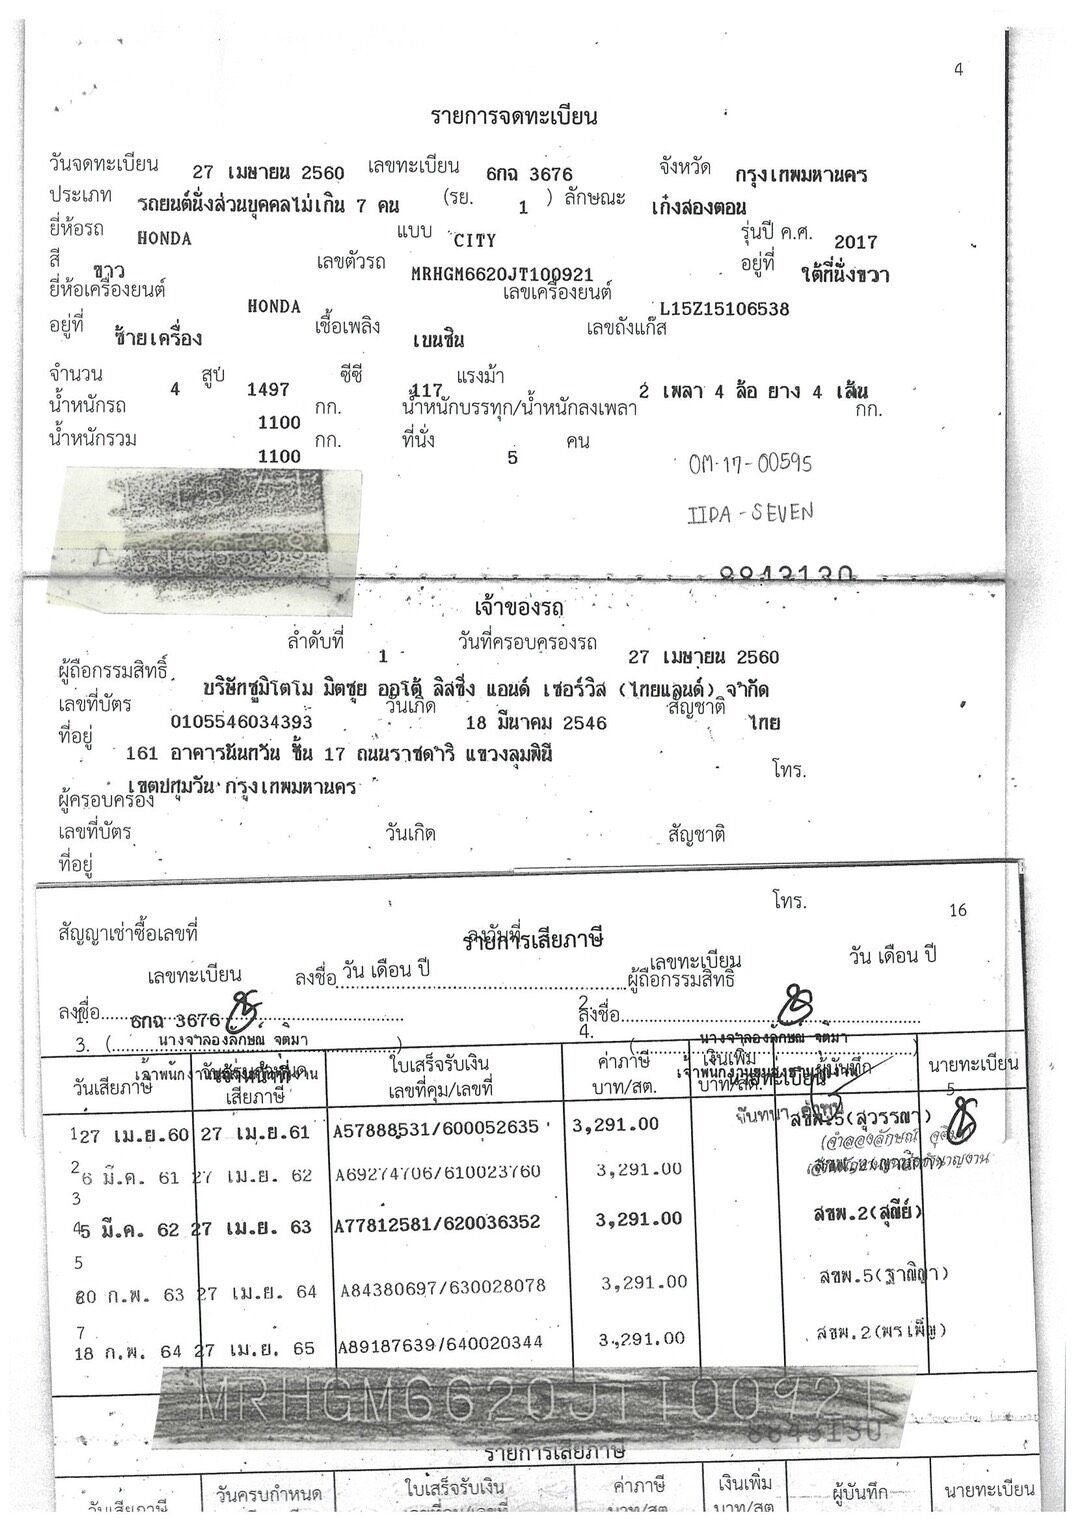 4
รายการจดทะเบียน
วันจดทะเบียน 27 เมษายน 2560 เลขทะเบียน 6กฉ 3676 จังหวัด กรุงเทพมหานคร
ประเภท รถยนต์นั่งส่วนบุคคลไม่เกิน 7 คน (รย. 1 ) ลักษณะ เก๋งสองตอน
ยี่ห้อรถ HONDA แบบ CITY รุ่นปี ค.ศ. 2017
สี ขาว เลขตัวรถ MRHGM6620JT100921 อยู่ที่ ใต้ที่นั่งขวา
ยี่ห้อเครื่องยนต์ HONDA เลขเครื่องยนต์ L15Z15106538
อยู่ที่ ซ้ายเครื่อง เชื้อเพลิง เบนซิน เลขถังแก๊ส
จำนวน 4 สูบ 1497 ซีซี 117 แรงม้า 2 เพลา 4 ล้อ ยาง 4 เส้น
น้ำหนักรถ 1100 กก. น้ำหนักบรรทุก/น้ำหนักลงเพลา กก.
น้ำหนักรวม 1100 กก. ที่นั่ง 5 คน
OM-17-00595
IIDA - SEVEN
8843130
เจ้าของรถ
ลำดับที่ 1 วันที่ครอบครองรถ 27 เมษายน 2560
ผู้ถือกรรมสิทธิ์ บริษัทซูมิโตโม มิตซุย ออโต้ ลิสซิ่ง แอนด์ เซอร์วิส (ไทยแลนด์) จำกัด
เลขที่บัตร 0105546034393 วันเกิด 18 มีนาคม 2546 สัญชาติ ไทย
ที่อยู่ 161 อาคารนันทวัน ชั้น 17 ถนนราชดำริ แขวงลุมพินี
เขตปทุมวัน กรุงเทพมหานคร โทร.
ผู้ครอบครอง
เลขที่บัตร วันเกิด สัญชาติ
ที่อยู่
โทร.
16
สัญญาเช่าซื้อเลขที่ ลงวันที่
รายการเสียภาษี
เลขทะเบียน วัน เดือน ปี เลขทะเบียน วัน เดือน ปี
ลงชื่อ ผู้ถือกรรมสิทธิ์
ลงชื่อ 6กฉ 3676 2. ลงชื่อ
3. (นางจำลองลักษณ์ จุติมา) 4. (นางจำลองลักษณ์ จุติมา)
วันเสียภาษี เสียภาษี ใบเสร็จรับเงิน เลขที่คุม/เลขที่ ค่าภาษี บาท/สต. เงินเพิ่ม บาท/สต. ผู้บันทึก นายทะเบียน
5
1 27 เม.ย.60 27 เม.ย.61 A57888531/600052635 3,291.00 สขพ.5(สุวรรณา)
2 6 มี.ค. 61 27 เม.ย. 62 A69274706/610023760 3,291.00
3
4 5 มี.ค. 62 27 เม.ย. 63 A77812581/620036352 3,291.00 สขพ.2(สุณีย์)
5
20 ก.พ. 63 27 เม.ย. 64 A84380697/630028078 3,291.00 สขพ.5(ฐาณิญา)
7
18 ก.พ. 64 27 เม.ย. 65 A89187639/640020344 3,291.00 สขพ.2(พรเพ็ญ)
MRHGM6620JT100921
8843130
รายการเสียภาษี
วันเสียภาษี วันครบกำหนด ใบเสร็จรับเงิน ค่าภาษี เงินเพิ่ม ผู้บันทึก นายทะเบียน
เลขที่คุม/เลขที่ บาท/สต. บาท/สต.